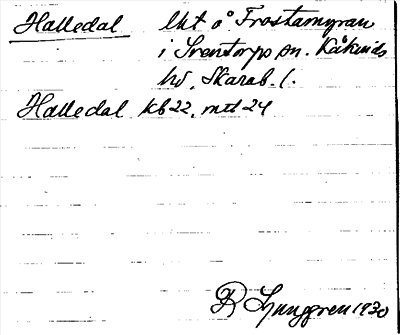 Halledal lht å Frostamyran
i Sventorps sn. Kåkinds
hd, Skarab. l.
Halledal kb 22, mtl 24
R Ljunggren 1930